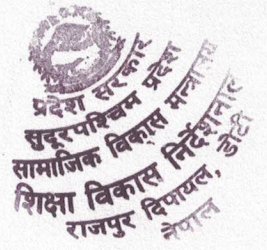 प्रदेश सरकार
सुदूरपश्चिम प्रदेश
सामाजिक विकास मन्त्रालय
शिक्षा विकास निर्देशनालय
राजपुर दिपायल, डोटी
नेपाल